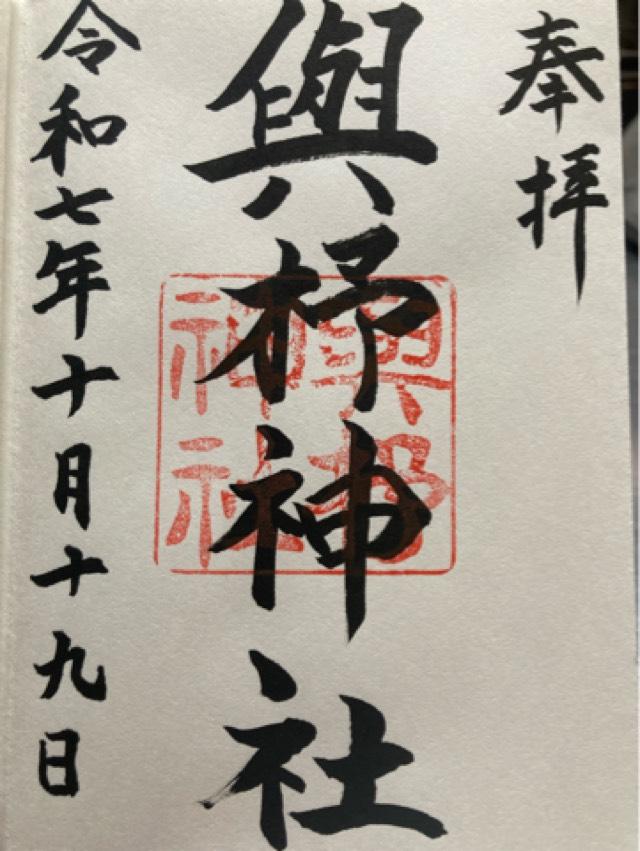 奉拝
與杼神社
與杼
神社
令和七年十月十九日